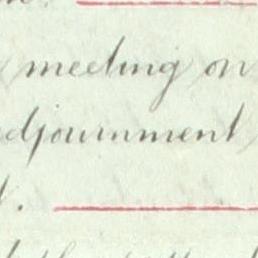 meeting on
adjournment